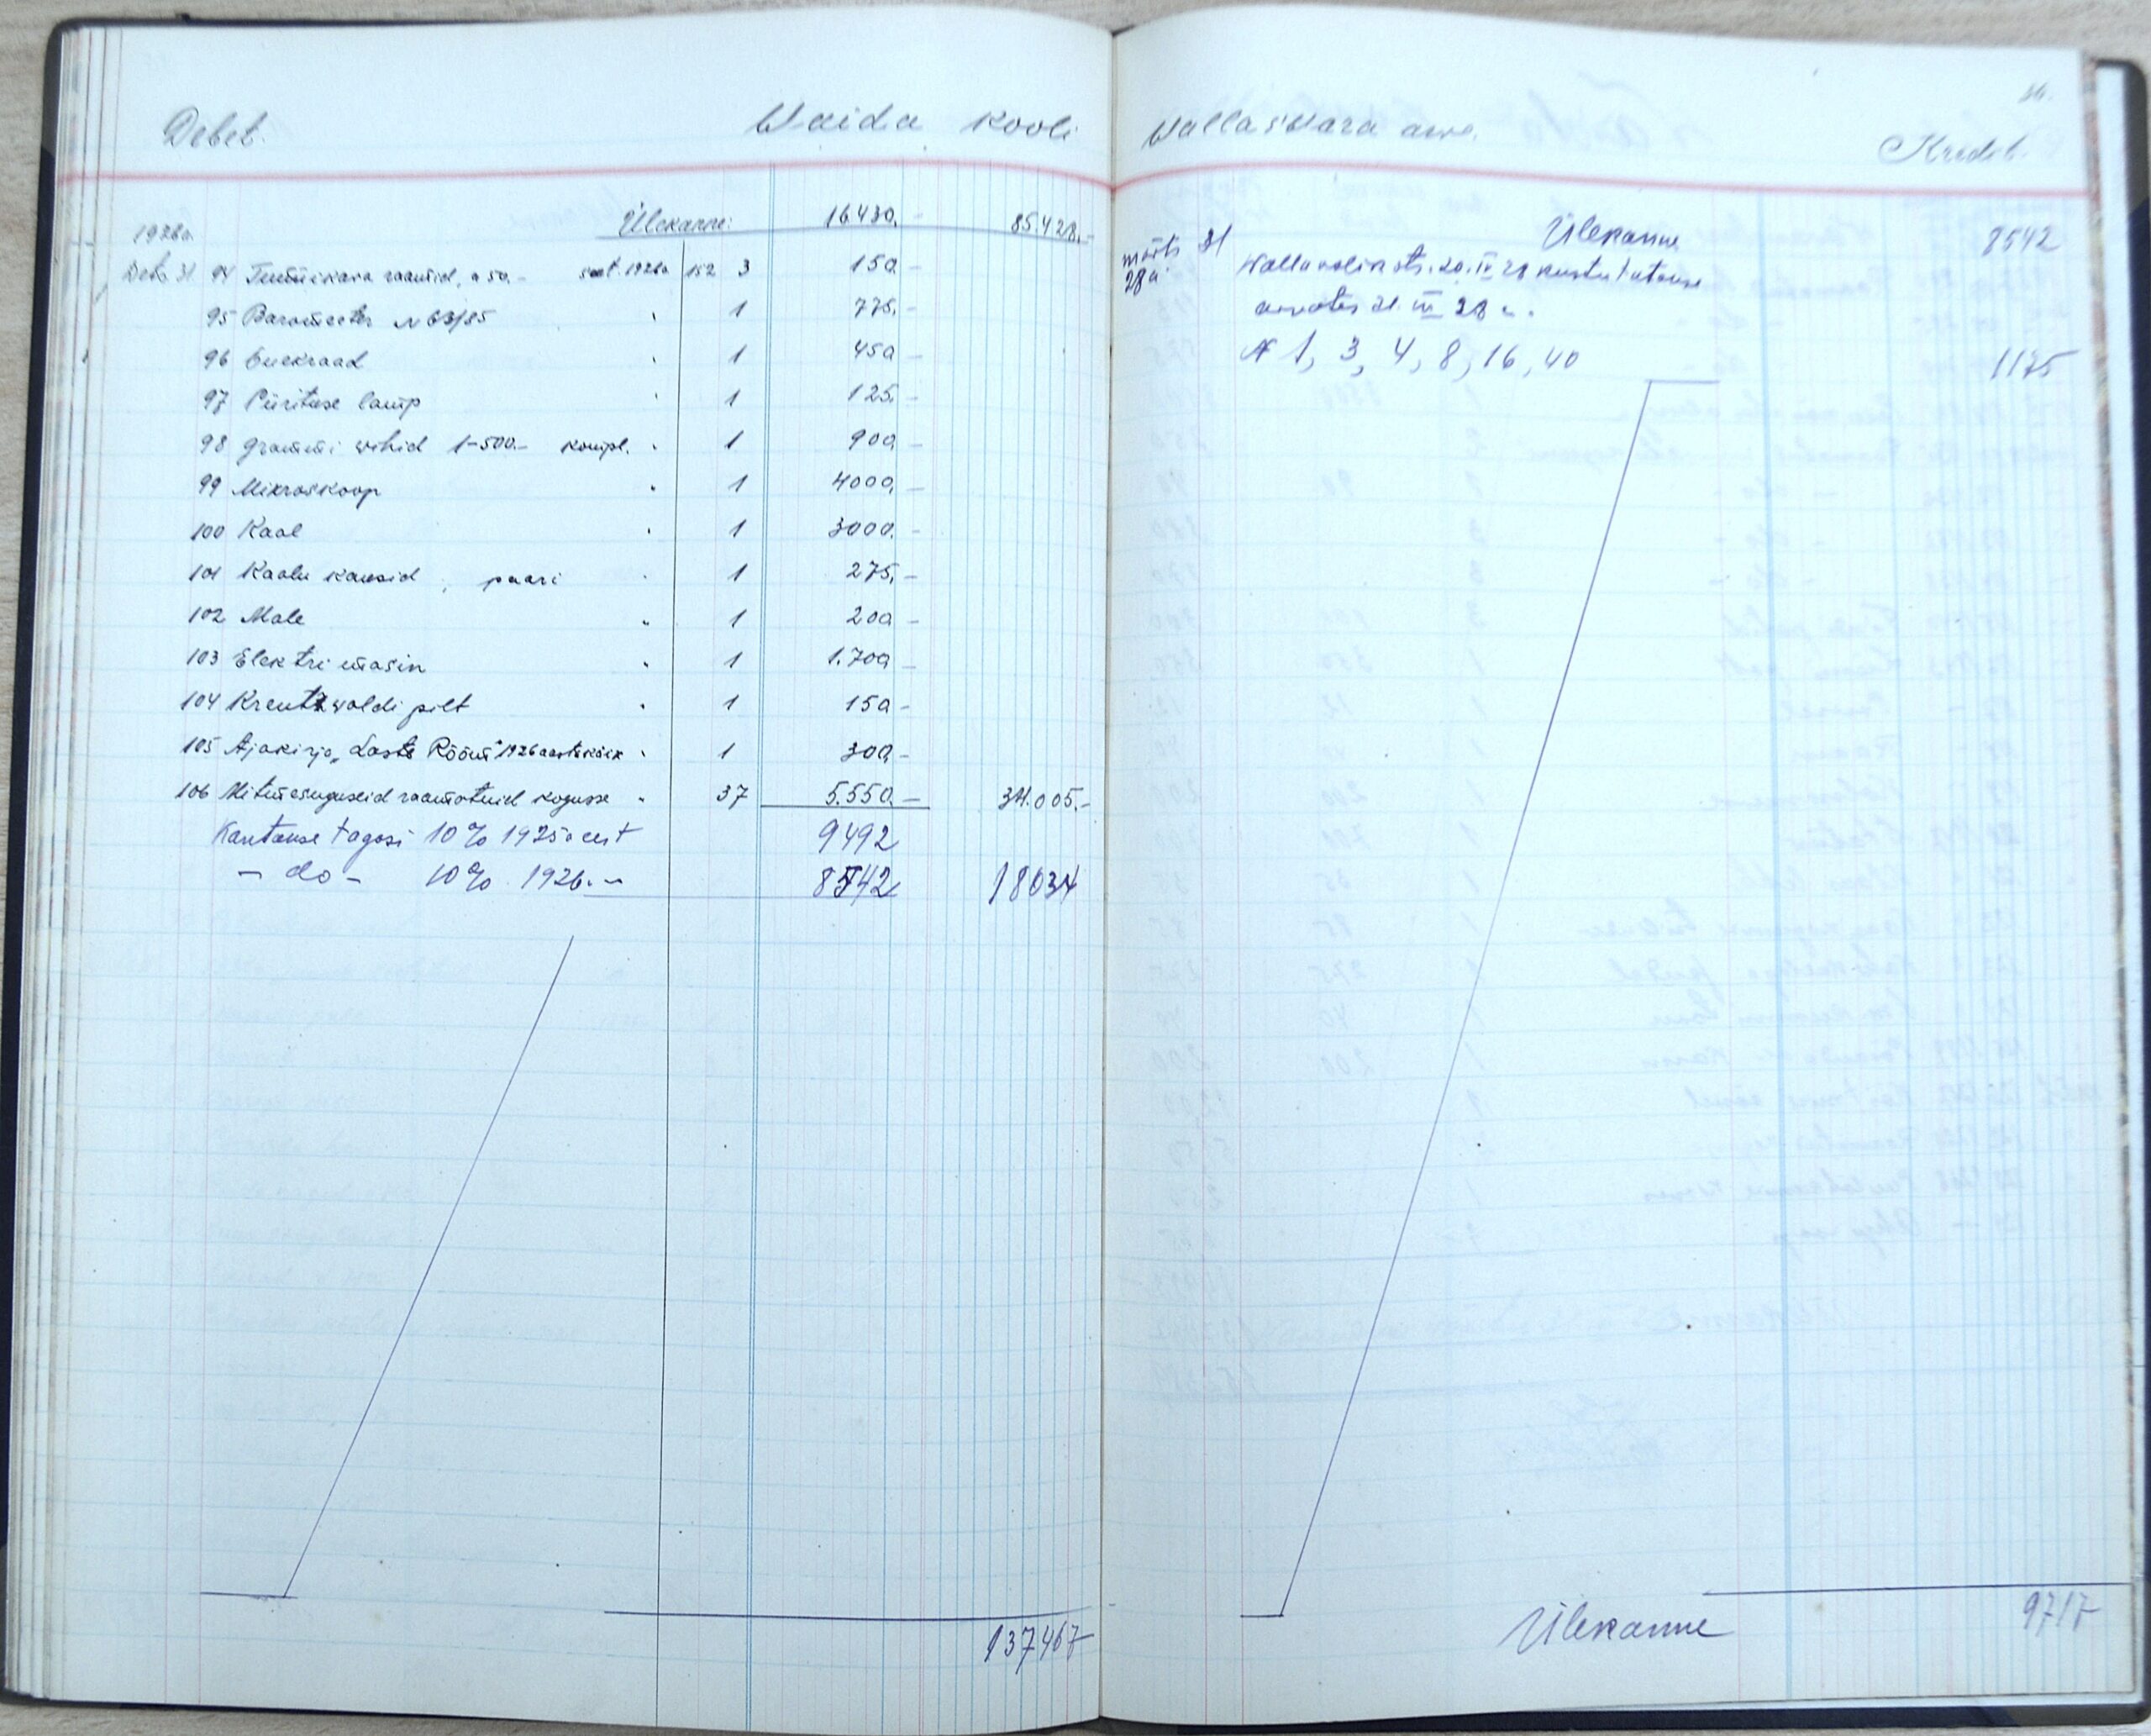 Debet. Waida kooli
1926a. Ülekanne: 16.430.- 85.428.-
Dets. 31 94 raamid, a 50.- 1926a 152 3 150.-
95 Baromeeter N 63/85 " 1 775.-
96 " 1 450.-
97 Piirituse lamp " 1 125.-
98 Grammi wihid 1-500.- kompl. " 1 900.-
99 Mikroskoop " 1 4000.-
100 Kaal " 1 3000.-
101 Kaalu kausid, paari " 1 275.-
102 Male " 1 200.-
103 Elektri masin " 1 1.700.-
104 Kreutzwaldi pilt " 1 150.-
105 Ajakirja "Laste Rõõm" 1926 aastakäik " 1 300.-
106 Mitmesuguseid raamatuid kogusse " 37 5.550.- 34.005.-
Kantakse tagasi 10% 1925a eest 9492
- do - 10% 1926. - 8542 18034
137467
36.
Wallaswara arwe. Kredit.
Ülekanne 8542
märts 31
28a
Wallavolik. ots. 20. IV 28 kustutatakse
arwates 31. III 28 a.
N 1, 3, 4, 8, 16, 40 1175
Ülekanne 9717